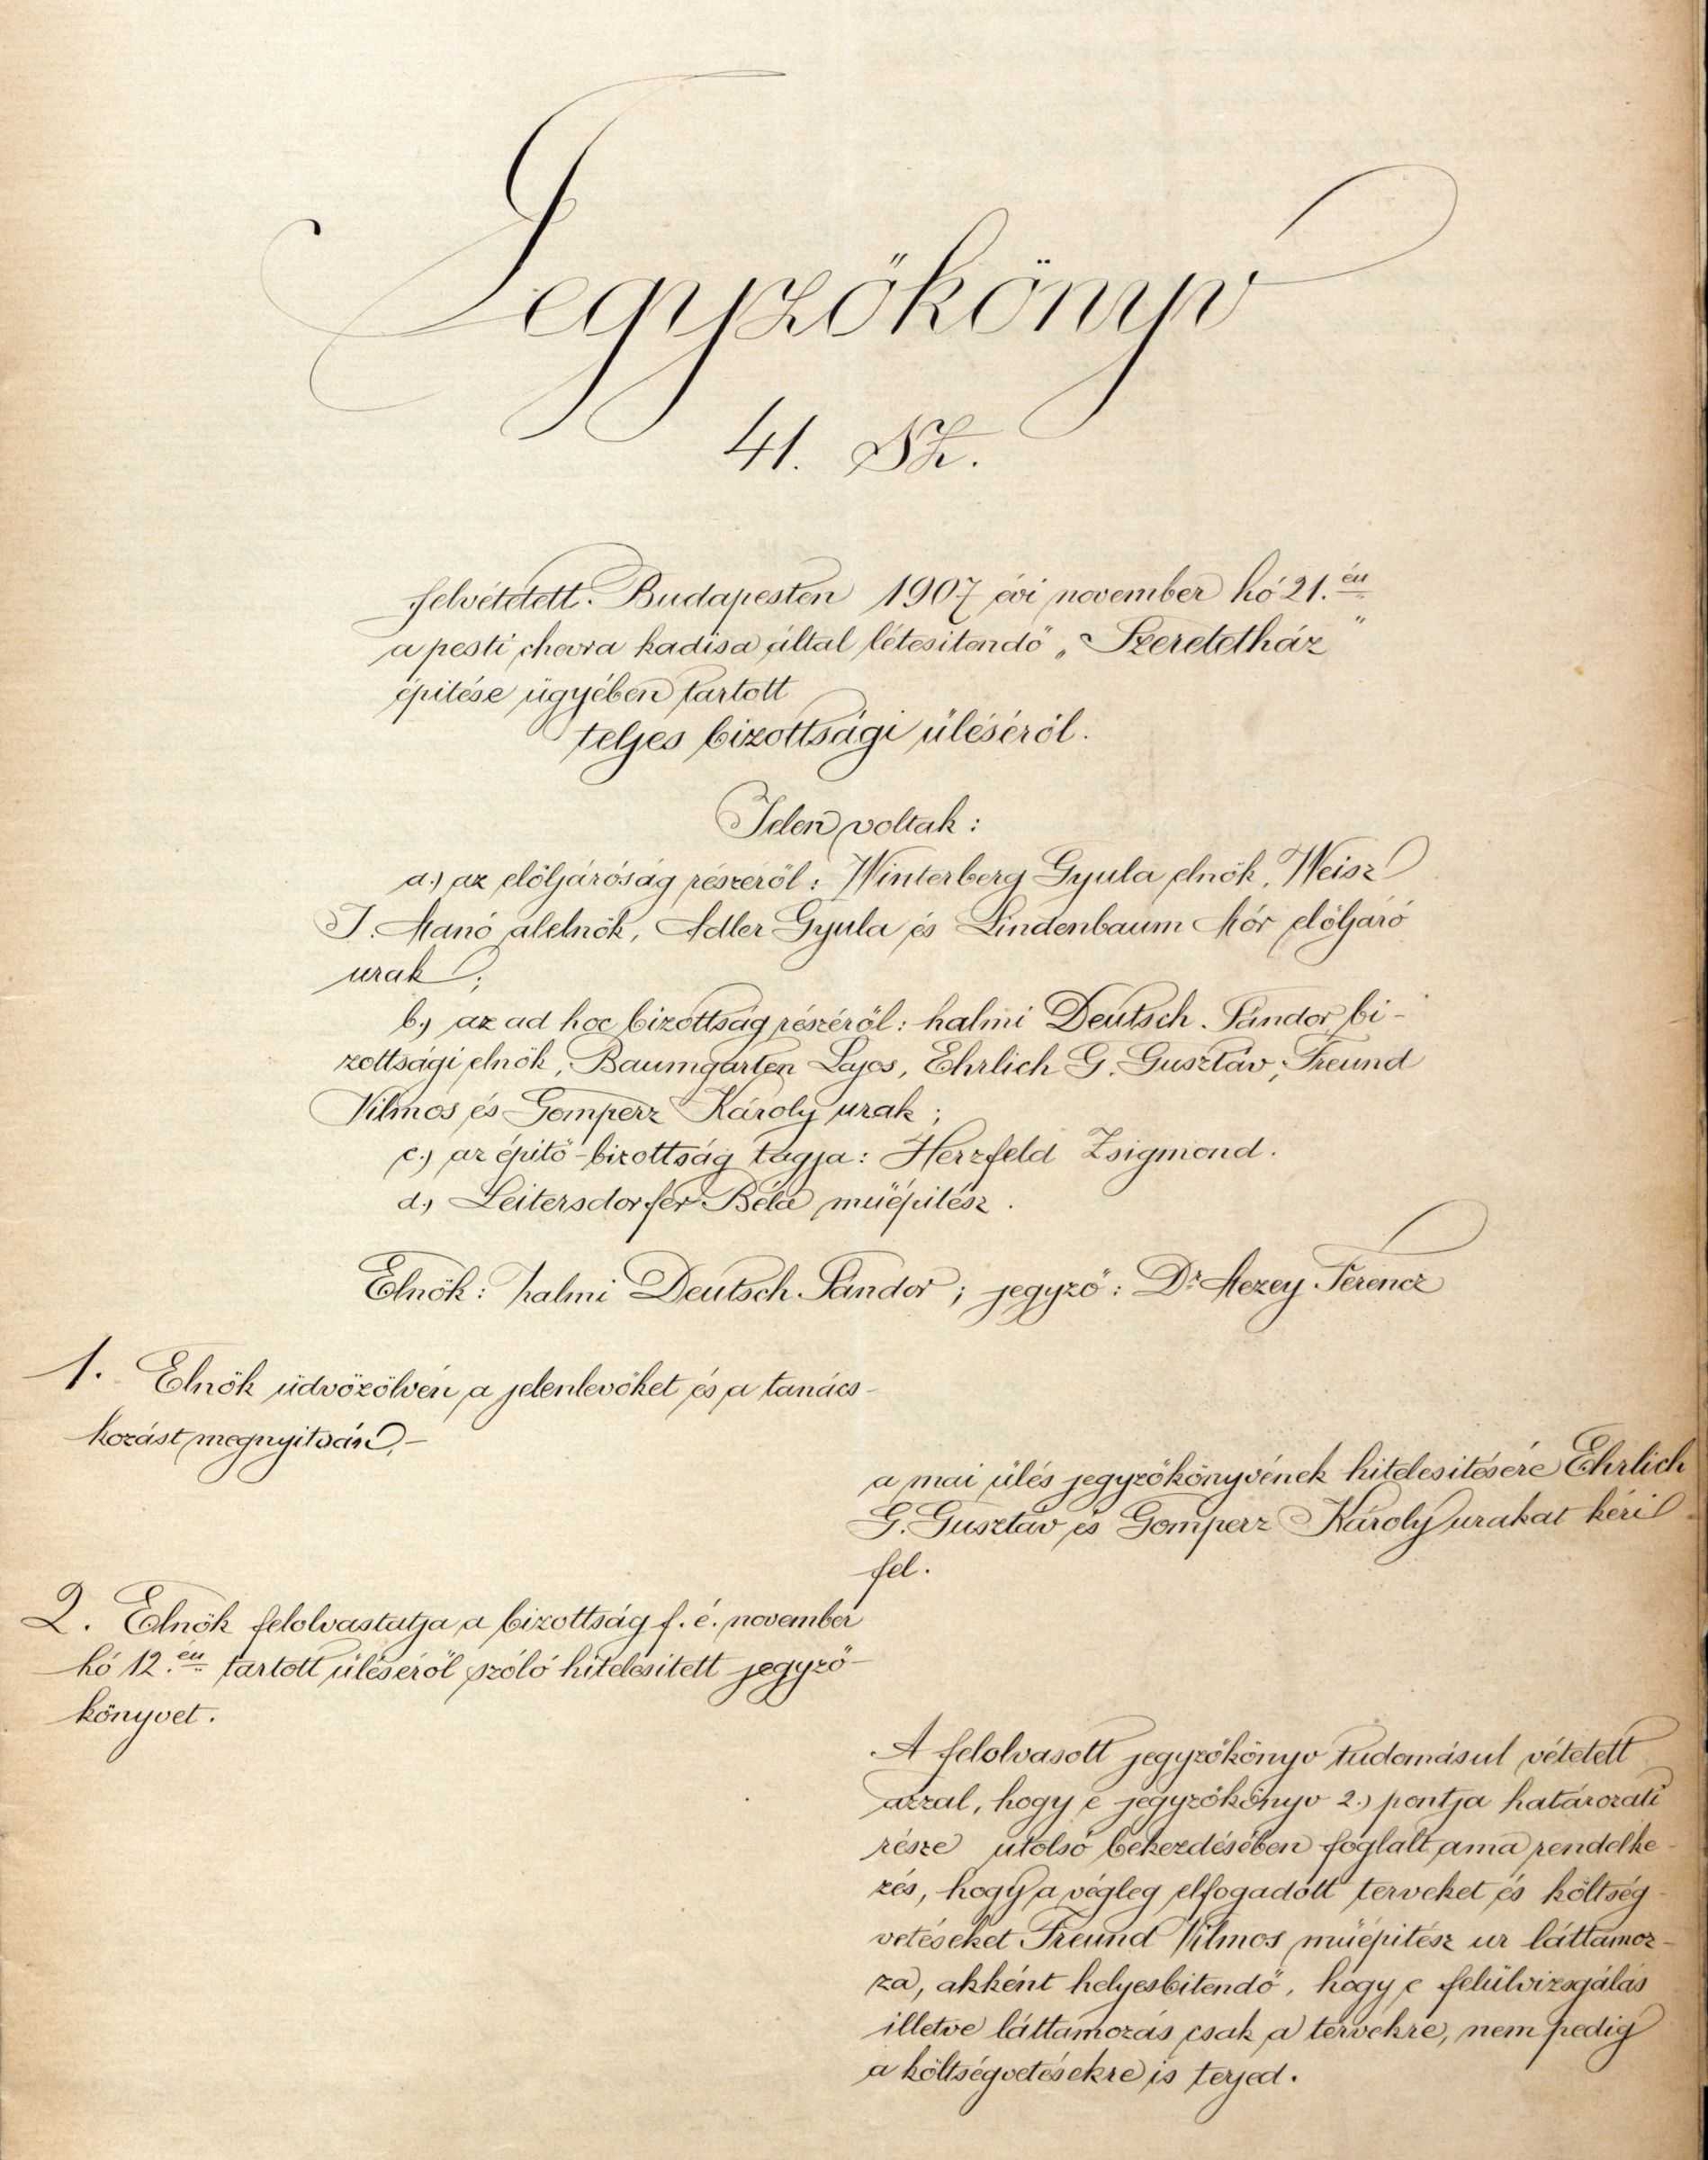 Jegyzőkönyv
41. Sz.
felvétetett Budapesten 1907 évi november hó 21.én
a pesti chevra kadisa által létesitendő „Szeretetház"
épitése ügyében tartott
teljes bizottsági üléséről.
Jelen voltak:
a.) az elöljáróság részéről: Winterberg Gyula elnök, Weisz
J. Manó alelnök, Adler Gyula és Lindenbaum Mór elöljáró
urak;
b.) az ad hoc bizottság részéről: halmi Deutsch Sándor bi-
zottsági elnök, Baumgarten Lajos, Ehrlich G. Gusztáv, Freund
Vilmos és Gomperz Károly urak;
c.) az épitő-bizottság tagja: Herzfeld Zsigmond.
d.) Leitersdorfer Béla műépitész.
Elnök: halmi Deutsch Sándor; jegyző: Dr Mezey Ferencz
1. Elnök üdvözölvén a jelenlevőket és a tanács-
kozást megnyitván,-
a mai ülés jegyzőkönyvének hitelesitésére Ehrlich
G. Gusztáv és Gomperz Károly urakat kéri
fel.
2. Elnök felolvastatja a bizottság f. é. november
hó 12.én tartott üléséről szóló hitelesitett jegyző-
könyvet.
A felolvasott jegyzőkönyv tudomásul vétetett
azzal, hogy e jegyzőkönyv 2.) pontja határozati
része utolsó bekezdésében foglalt ama rendelke-
zés, hogy a végleg elfogadott terveket és költség-
vetéseket Freund Vilmos műépitész ur láttamoz-
za, akként helyesbitendő, hogy e felülvizsgálás
illetve láttamozás csak a tervekre, nem pedig
a költségvetésekre is terjed.